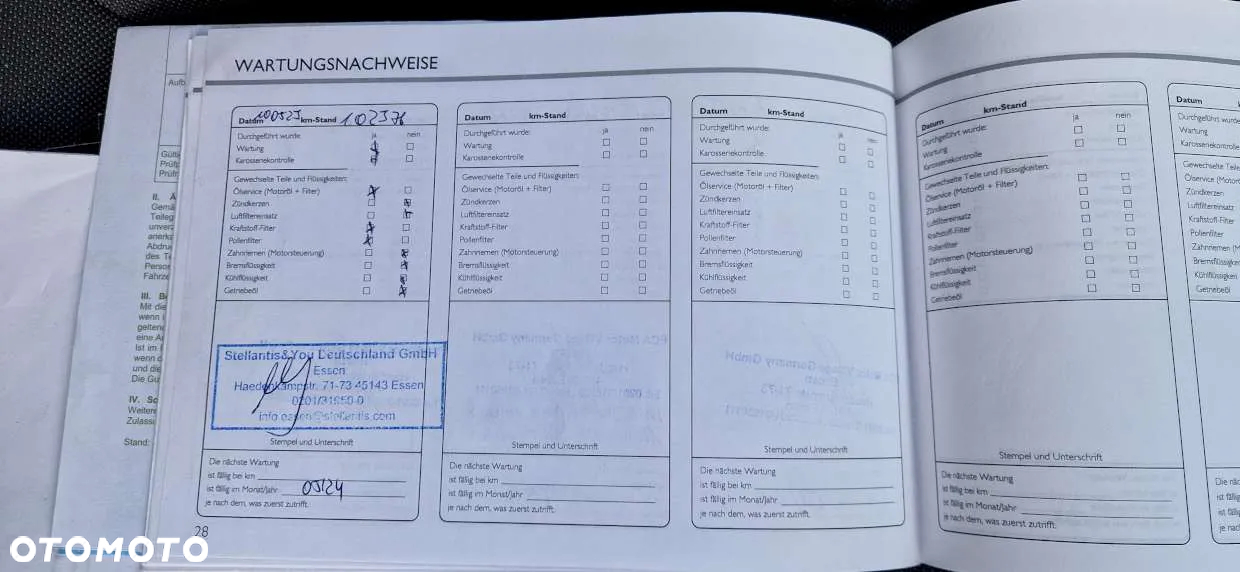 WARTUNGSNACHWEISE
Datum 100523 km-Stand 102376
Durchgeführt wurde: ja nein
Wartung
Karosseriekontrolle
Gewechselte Teile und Flüssigkeiten:
Ölservice (Motoröl + Filter)
Zündkerzen
Luftfiltereinsatz
Kraftstoff-Filter
Pollenfilter
Zahnriemen (Motorsteuerung)
Bremsflüssigkeit
Kühlflüssigkeit
Getriebeöl
Stellantis&You Deutschland GmbH
Essen
Haedenkampstr. 71-73 45143 Essen
Stempel und Unterschrift
Die nächste Wartung
ist fällig bei km
ist fällig im Monat/Jahr 05/24
je nach dem, was zuerst zutrifft.
28
Datum km-Stand
Durchgeführt wurde: ja nein
Wartung
Karosseriekontrolle
Gewechselte Teile und Flüssigkeiten:
Ölservice (Motoröl + Filter)
Zündkerzen
Luftfiltereinsatz
Kraftstoff-Filter
Pollenfilter
Zahnriemen (Motorsteuerung)
Bremsflüssigkeit
Kühlflüssigkeit
Getriebeöl
Stempel und Unterschrift
Die nächste Wartung
ist fällig bei km
ist fällig im Monat/Jahr
je nach dem, was zuerst zutrifft.
Datum km-Stand
Durchgeführt wurde: ja nein
Wartung
Karosseriekontrolle
Gewechselte Teile und Flüssigkeiten:
Ölservice (Motoröl + Filter)
Zündkerzen
Luftfiltereinsatz
Kraftstoff-Filter
Pollenfilter
Zahnriemen (Motorsteuerung)
Bremsflüssigkeit
Kühlflüssigkeit
Getriebeöl
Stempel und Unterschrift
Die nächste Wartung
ist fällig bei km
ist fällig im Monat/Jahr
je nach dem, was zuerst zutrifft.
Datum km-Stand
Durchgeführt wurde: ja nein
Wartung
Karosseriekontrolle
Gewechselte Teile und Flüssigkeiten:
Ölservice (Motoröl + Filter)
Zündkerzen
Luftfiltereinsatz
Kraftstoff-Filter
Pollenfilter
Zahnriemen (Motorsteuerung)
Bremsflüssigkeit
Kühlflüssigkeit
Getriebeöl
Stempel und Unterschrift
Die nächste Wartung
ist fällig bei km
ist fällig im Monat/Jahr
je nach dem, was zuerst zutrifft.
Datum
Wartung
OTOMOTO